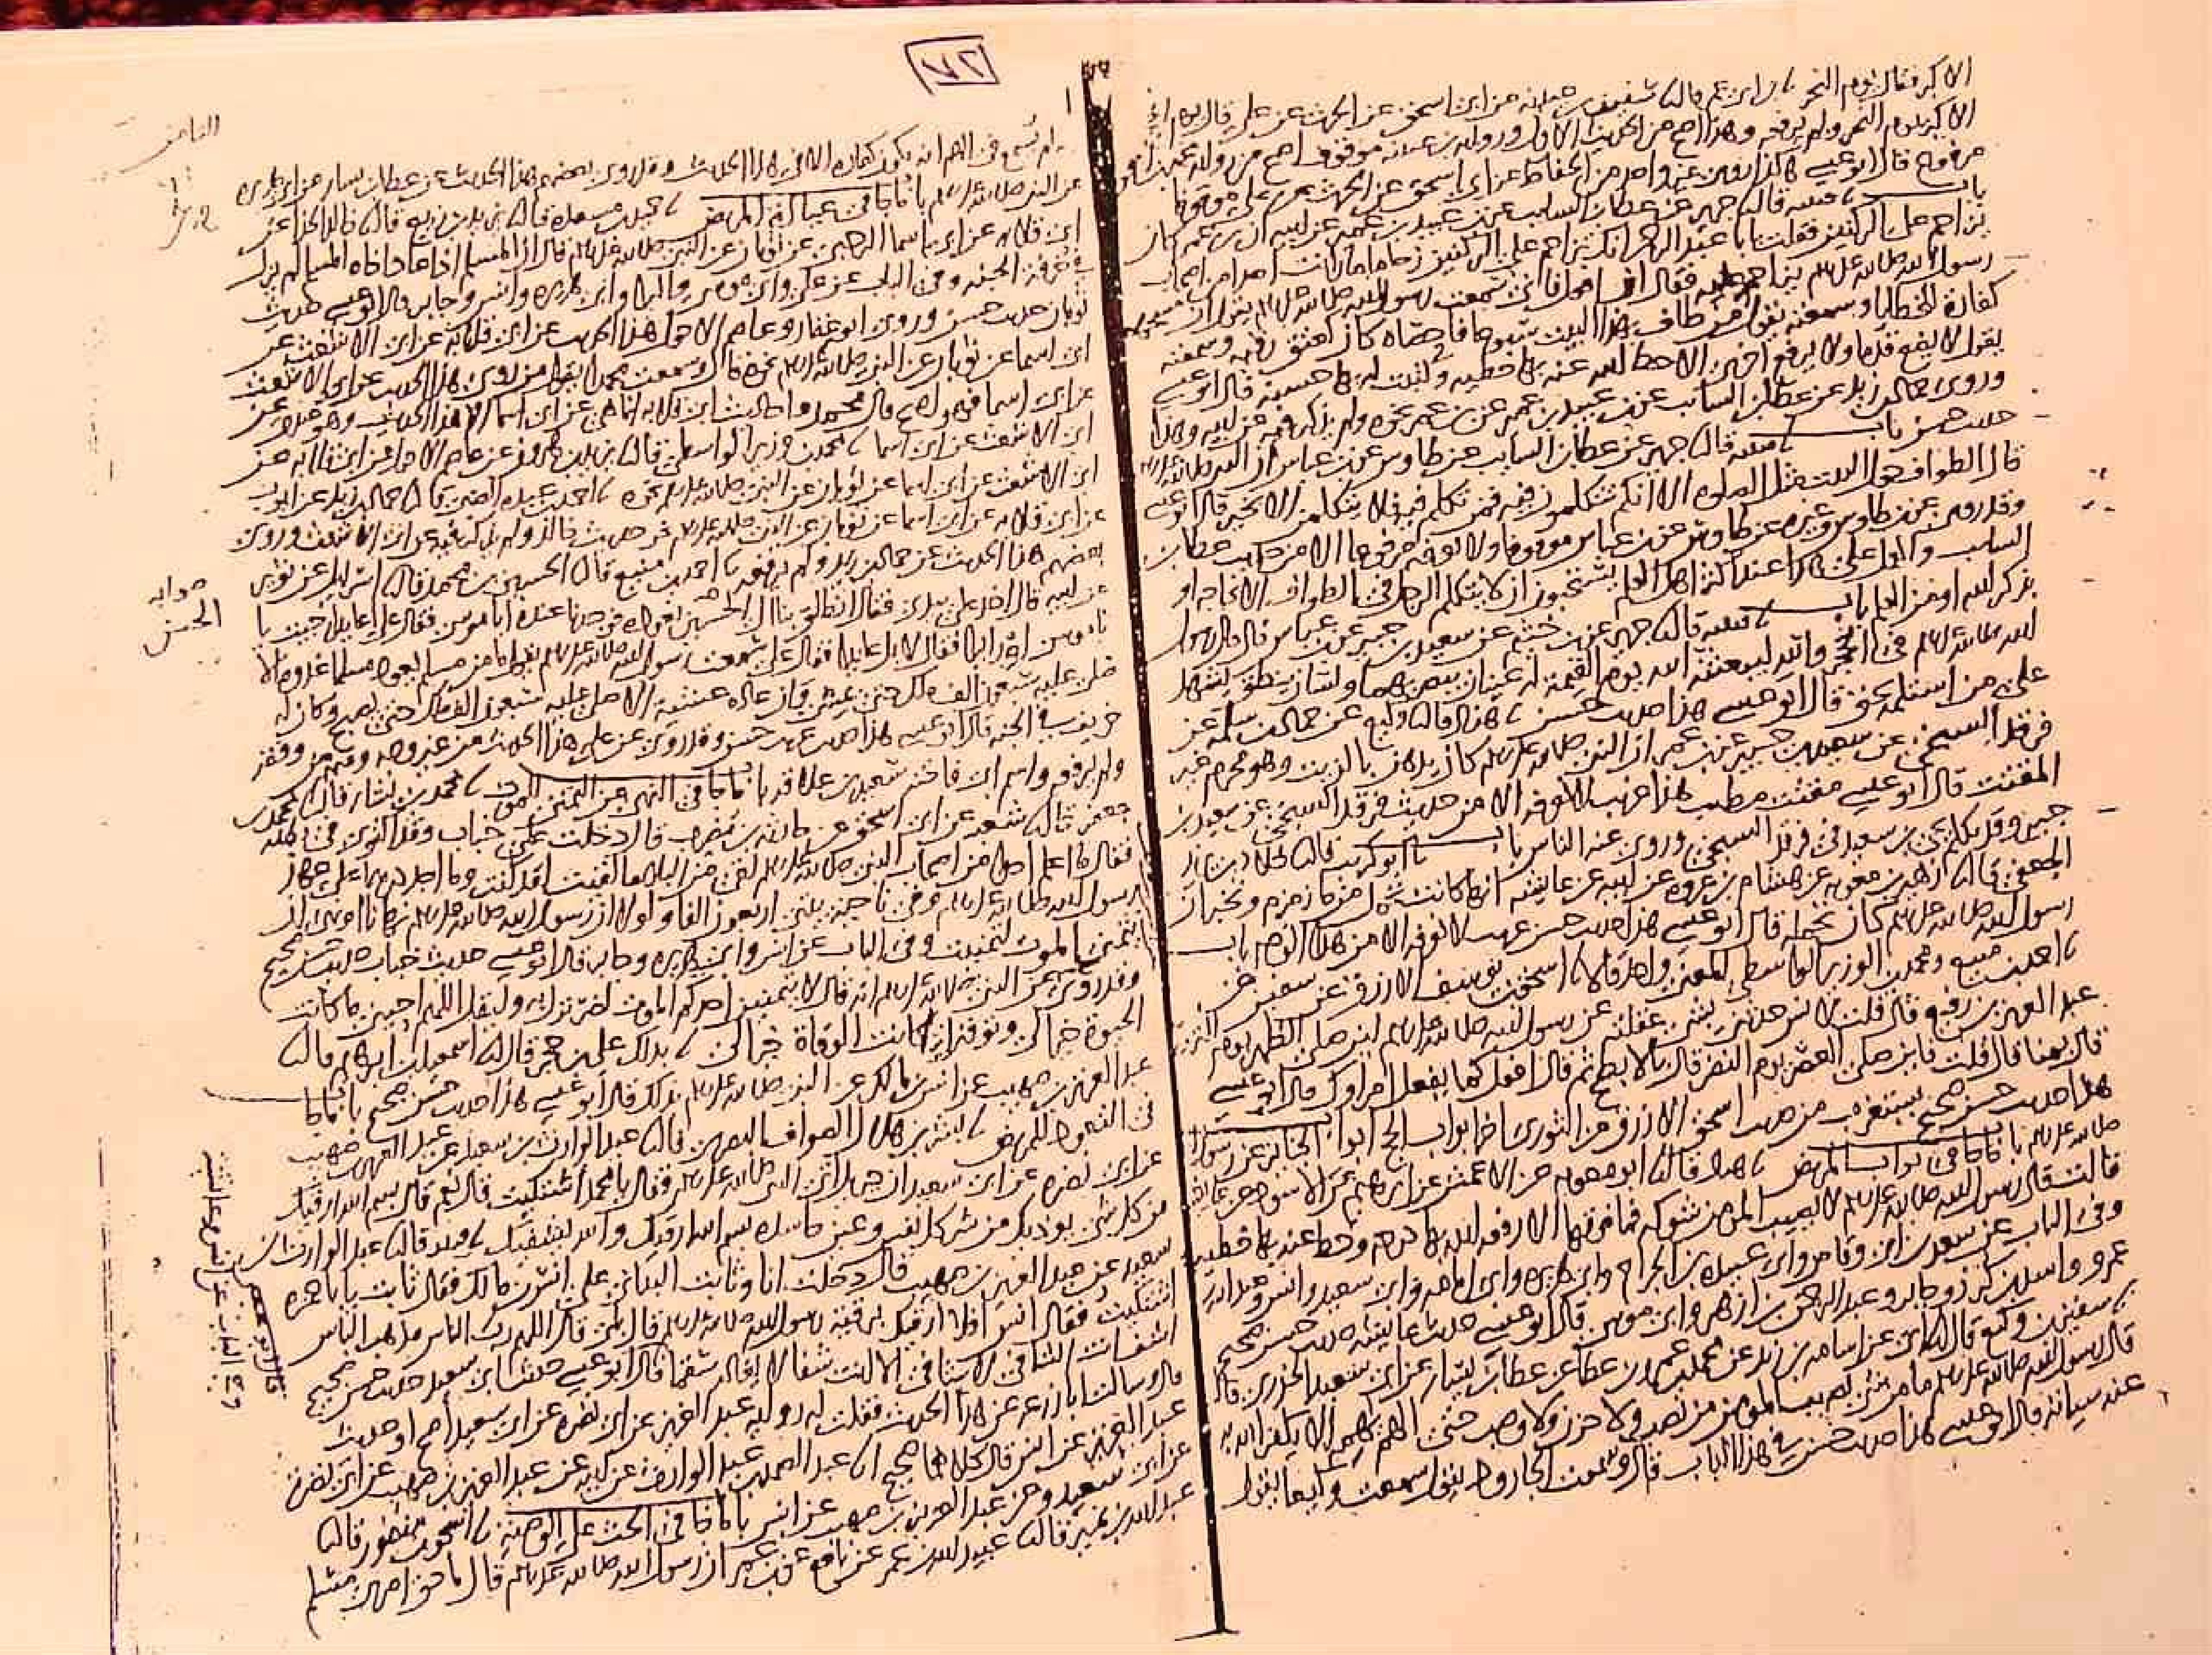 ٧٢
الاكبر فقال يوم النحر نا ابن ابي عمر قال نا سفيان بن عيينة عن ابي اسحق عن الحرث عن علي قال يوم الحج
الاكبر يوم النحر ولم يرفعه وهذا اصح من الحديث الاول ورواية ابن عيينة موقوف اصح من رواية محمد بن اسحق
مرفوع قال ابو عيسى هكذا روى غير واحد من الحفاظ عن ابي اسحق عن الحرث عن علي موقوفا
باب نا قتيبة قال نا جرير عن عطا بن السايب عن ابن عبيد بن عمير عن ابيه ان ابن عمر كان
يزاحم على الركنين فقلت يابا عبد الرحمن انك تزاحم على الركنين زحاما ما رايت احدا من اصحاب
رسول الله صلى الله عليه وسلم يزاحم عليه فقال ان افعل فاني سمعت رسول الله صلى الله عليه وسلم يقول ان مسحهما
كفارة للخطايا وسمعته يقول من طاف بهذا البيت سبوعا فاحصاه كان كعتق رقبة وسمعته
يقول لا يضع قدما ولا يرفع اخرى الا حط الله عنه بها خطية وكتبت له بها حسنة قال ابو عيسى
وروى حماد بن زيد عن عطا بن السايب عن ابن عبيد بن عمير عن ابن عمر نحوه ولم يذكر فيه عن ابيه وهذا
حديث حسن باب نا قتيبة قال نا جرير عن عطا بن السايب عن طاوس عن ابن عباس ان النبي صلى الله عليه وسلم
قال الطواف حول البيت مثل الصلوة الا انكم تتكلمون فيه فمن تكلم فيه فلا يتكلمن الا بخير قال ابو عيسى
وقد روي عن ابن طاوس وغيره عن طاوس عن ابن عباس موقوفا ولا نعرفه مرفوعا الا من حديث عطا بن
السايب والعمل على هذا عند اكثر اهل العلم يستحبون ان لا يتكلم الرجل في الطواف الا لحاجة او
بذكر الله او من العلم باب نا قتيبة قال نا جرير عن ابن خثيم عن سعيد بن جبير عن ابن عباس قال قال رسول
الله صلى الله عليه وسلم في الحجر والله ليبعثنه الله يوم القيمة له عينان يبصر بهما ولسان ينطق به يشهد
على من استلمه بحق قال ابو عيسى هذا حديث حسن نا هناد قال نا وكيع عن حماد بن سلمة عن
فرقد السبخي عن سعيد بن جبير عن ابن عمر ان النبي صلى الله عليه وسلم كان يدهن بالزيت وهو محرم غير
المقتت قال ابو عيسى مقتت مطيب هذا حديث لا نعرفه الا من حديث فرقد السبخي عن سعيد بن
جبير وقد تكلم يحيى بن سعيد في فرقد السبخي وروى عنه الناس باب نا ابو كريب قال نا خلاد بن يزيد
الجعفي قال نا زهير بن معوية عن هشام بن عروة عن ابيه عن عايشة انها كانت تحمل من ما زمزم وتخبر ان
رسول الله صلى الله عليه وسلم كان يحمله قال ابو عيسى هذا حديث حسن غريب لا نعرفه الا من هذا الوجه باب
نا احمد بن منيع ومحمد بن الوزير الواسطي المعنى واحد قالا نا اسحق بن يوسف الازرق عن سفين عن
عبد العزيز بن رفيع قال قلت لانس حدثني بشي عقلته عن رسول الله صلى الله عليه وسلم اين صلى الظهر يوم التروية
قال بمنا قال قلت فاين صلى العصر يوم النفر قال بالابطح ثم قال افعل كما يفعل امراوك قال ابو عيسى
هذا حديث حسن صحيح يستغرب من حديث اسحق الازرق عن الثوري اخر ابواب الحج ابواب الجنايز عن رسول الله
صلى الله عليه وسلم باب ما جا في ثواب المريض نا هناد قال نا ابو معوية عن الاعمش عن ابرهيم عن الاسود عن عايشة
قالت قال رسول الله صلى الله عليه وسلم لا يصيب المومن شوكة فما فوقها الا رفعه الله بها درجة وحط عنه بها خطية
وفي الباب عن سعد بن ابي وقاص وابي عبيدة بن الجراح وابي هريرة وابي امامة وابي سعيد وانس وعبد الله بن
عمرو واسد بن كرز وجابر وعبد الرحمن بن ازهر وابي موسى قال ابو عيسى حديث عايشة حديث حسن صحيح
نا سفين بن وكيع قال نا ابي عن اسامة بن زيد عن محمد بن عمرو بن عطا عن عطا بن يسار عن ابي سعيد الخدري قال
قال رسول الله صلى الله عليه وسلم ما من شي يصيب المومن من نصب ولا حزن ولا وصب حتى الهم يهمه الا يكفر الله به
عنه سياته قال ابو عيسى هذا حديث حسن في هذا الباب قال وسمعت الجارود يقول سمعت وكيعا يقول
لم يسمع في الهم انه يكون كفارة الا في هذا الحديث وقد روى بعضهم هذا الحديث عن عطا بن يسار عن ابي هريرة
عن النبي صلى الله عليه وسلم باب ما جا في عيادة المريض نا حميد بن مسعدة قال نا يزيد بن زريع قال نا خالد الحذا عن
ابي قلابة عن ابي اسما الرحبي عن ثوبان عن النبي صلى الله عليه وسلم قال ان المسلم اذا عاد اخاه المسلم لم يزل
في خرفة الجنة وفي الباب عن علي وابي موسى والبرا وابي هريرة وانس وجابر قال ابو عيسى حديث
ثوبان حديث حسن وروى ابو غفار وعاصم الاحول هذا الحديث عن ابي قلابة عن ابي الاشعث عن
ابي اسما عن ثوبان عن النبي صلى الله عليه وسلم نحوه قال وسمعت محمدا يقول من روى هذا الحديث عن ابي الاشعث
عن ابي اسما فهو اصح قال محمد واحاديث ابي قلابة انما هي عن ابي اسما الا هذا الحديث وهو عندي عن
ابي الاشعث عن ابي اسما نا محمد بن وزير الواسطي قال نا يزيد بن هرون عن عاصم الاحول عن ابي قلابة عن
ابي الاشعث عن ابي اسما عن ثوبان عن النبي صلى الله عليه وسلم نحوه نا احمد بن عبدة الضبي قال نا حماد بن زيد عن ايوب
عن ابي قلابة عن ابي اسما عن ثوبان عن النبي صلى الله عليه وسلم نحو حديث خالد ولم يذكر فيه عن ابي الاشعث وروى
بعضهم هذا الحديث عن حماد بن زيد ولم يرفعه نا احمد بن منيع قال نا الحسين بن محمد قال نا اسرائيل عن ثوير
عن ابيه قال اخذ علي بيدي فقال انطلق بنا الى الحسين نعوده فوجدنا عنده ابا موسى فقال علي اعايدا جيت يا
ابا موسى ام زايرا فقال لا بل عايدا فقال علي سمعت رسول الله صلى الله عليه وسلم يقول ما من مسلم يعود مسلما غدوة الا
صلى عليه سبعون الف ملك حتى يمسي وان عاده عشية الا صلى عليه سبعون الف ملك حتى يصبح وكان له
خريف في الجنة قال ابو عيسى هذا حديث غريب حسن وقد روي عن علي هذا الحديث من غير وجه ومنهم من وقفه
ولم يرفعه واسم ابي فاختة سعيد بن علاقة باب ما جا في النهي عن التمني للموت نا محمد بن بشار قال نا محمد بن
جعفر قال نا شعبة عن ابي اسحق عن حارثة بن مضرب قال دخلت على خباب وقد اكتوى في بطنه
فقال ما اعلم احدا من اصحاب النبي صلى الله عليه وسلم لقي من البلا ما لقيت لقد كنت وما اجد درهما على عهد
رسول الله صلى الله عليه وسلم وفي ناحية بيتي اربعون الفا ولولا ان رسول الله صلى الله عليه وسلم نهانا او نهى ان
يتمنى الموت لتمنيت وفي الباب عن انس وابي هريرة وجابر قال ابو عيسى حديث خباب حديث حسن صحيح
وقد روي عن النبي صلى الله عليه وسلم انه قال لا يتمنين احدكم الموت لضر نزل به وليقل اللهم احيني ما كانت
الحيوة خيرا لي وتوفني اذا كانت الوفاة خيرا لي نا بذلك علي بن حجر قال نا اسمعيل بن ابرهيم قال نا
عبد العزيز بن صهيب عن انس بن مالك عن النبي صلى الله عليه وسلم بذلك قال ابو عيسى هذا حديث حسن صحيح باب ما جا
في التعوذ للمريض نا بشر بن هلال الصواف البصري قال نا عبد الوارث بن سعيد عن عبد العزيز بن صهيب
عن ابي نضرة عن ابي سعيد ان جبريل اتى النبي صلى الله عليه وسلم فقال يا محمد اشتكيت قال نعم قال بسم الله ارقيك
من كل شي يوذيك من شر كل نفس وعين حاسدة بسم الله ارقيك والله يشفيك نا قتيبة قال نا عبد الوارث بن
سعيد عن عبد العزيز بن صهيب قال دخلت انا وثابت البناني على انس بن مالك فقال ثابت يابا حمزة
اشتكيت فقال انس افلا ارقيك برقية رسول الله صلى الله عليه وسلم قال بلى قال اللهم رب الناس مذهب الباس
اشف انت الشافي لا شافي الا انت شفا لا يغادر سقما قال ابو عيسى حديث ابي سعيد حديث حسن صحيح
قال وسالت ابا زرعة عن هذا الحديث فقلت له رواية عبد العزيز عن ابي نضرة عن ابي سعيد اصح او حديث
عبد العزيز عن انس قال كلاهما صحيح انا عبد الصمد بن عبد الوارث عن ابيه عن عبد العزيز بن صهيب عن ابي نضرة
عن ابي سعيد وعن عبد العزيز بن صهيب عن انس باب ما جا في الحث على الوصية نا اسحق بن منصور قال نا
عبد الله بن نمير قال نا عبيد الله بن عمر عن نافع عن ابن عمر ان رسول الله صلى الله عليه وسلم قال ما حق امرئ مسلم
صوابه
الحسن
وفي الباب عن انس وعايشة
قال ابو عيسى